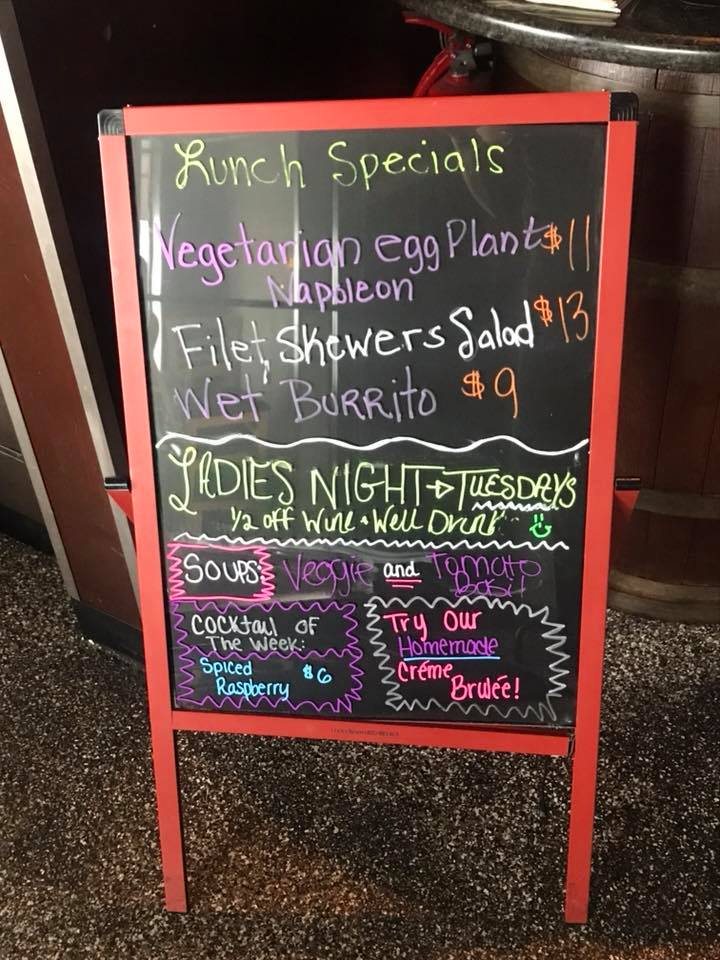 Lunch Specials
Vegetarian eggPlant $11
Napoleon
Filet Skewers Salad $13
Wet BURRito $9
LADIES NIGHT→TUESDAYS
1/2 off Wine & Well Drink
SOUPS: Veggie and Tomato
Basil
COCKtail OF
The Week:
Spiced $6
Raspberry
Try Our
Homemade
Créme
Brulée!